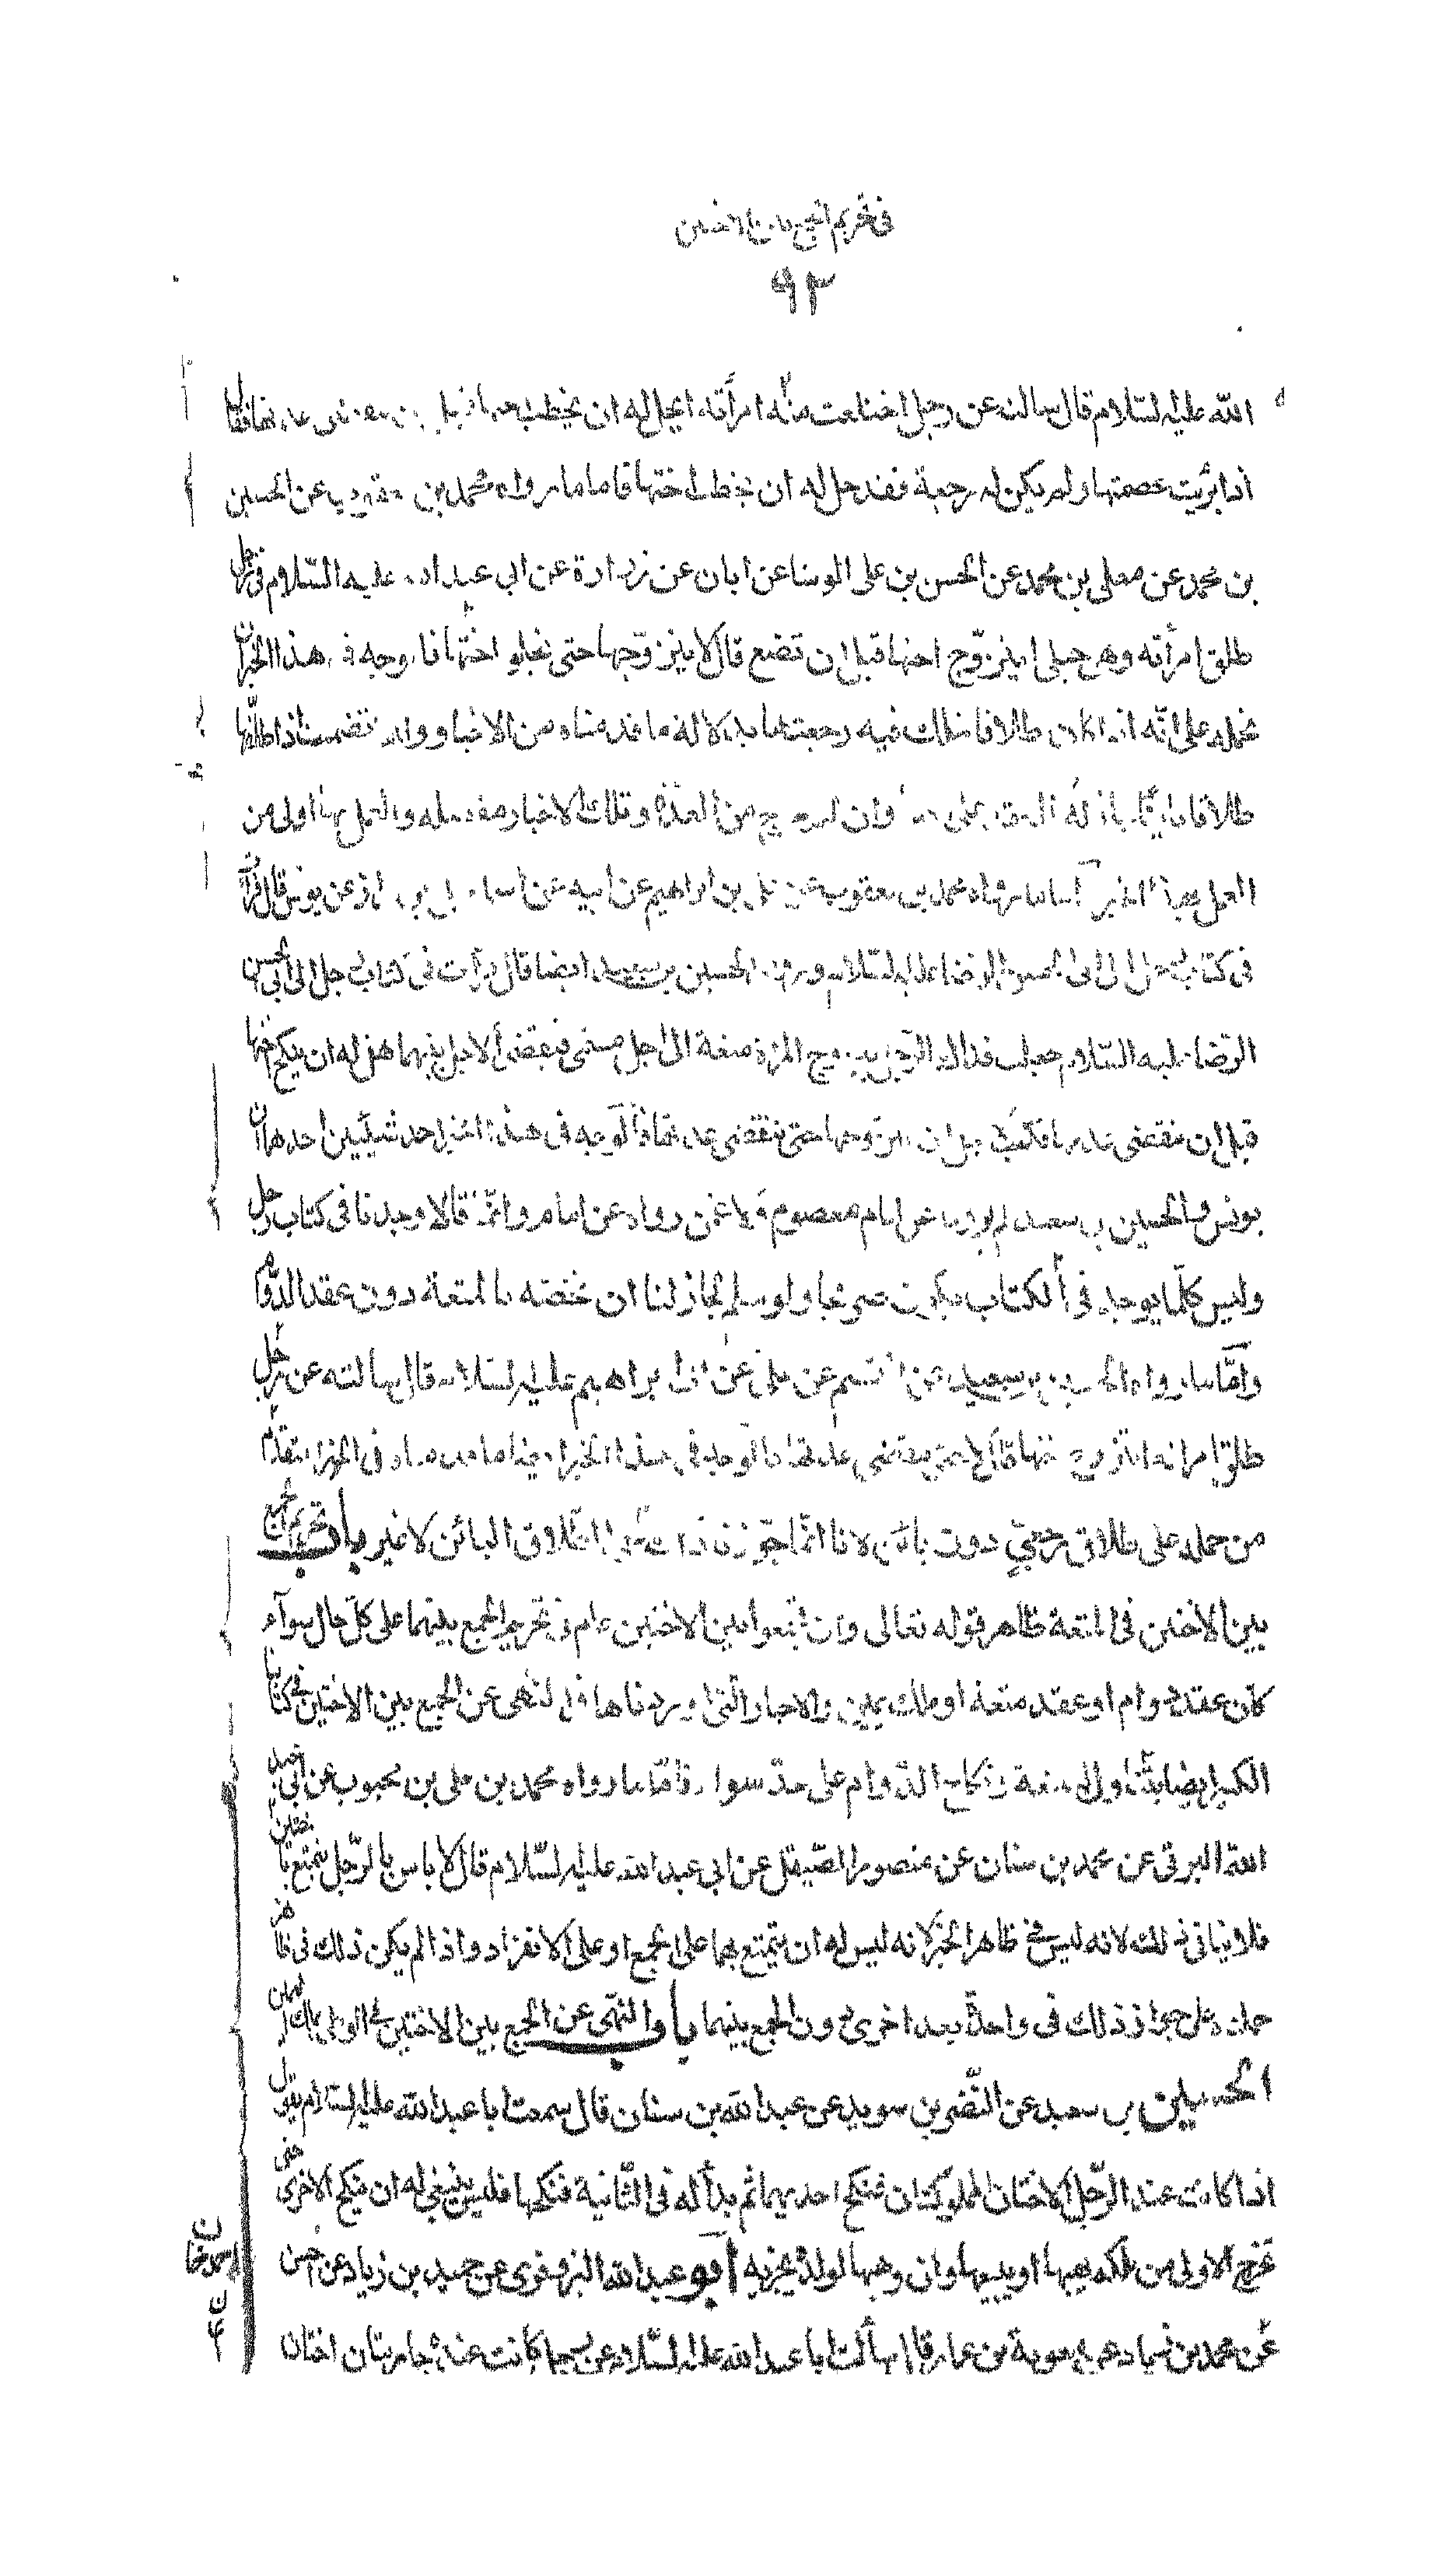 في تحريم الجمع بين الاختين
٩٣
الله عليه السلام قال سالته عن رجل اختلعت منه امرأته ايحل له ان يخطب اختها قبل ان تنقضى عدتها فقال
اذا برئت عصمتها ولم يكن له رجعة فقد حل له ان يخطب اختها فاما ما رواه محمد بن يعقوب عن الحسين
بن محمد عن معلى بن محمد عن الحسن بن على الوشا عن ابان عن زرارة عن ابى عبد الله عليه السلام فى رجل
طلق امرأته وهى حبلى ايتزوج اختها قبل ان تضع قال لا يتزوجها حتى يخلو اجلها فالوجه فى هذا الخبر ان
نحمله على انه اذا كان طلاقا يملك فيه رجعتها بدلالة ما قدمناه من الاخبار وانه تضمنت اذا طلقها
طلاقا باينا جاز له العقد على وان لم تخرج من العدة وتلك الاخبار مفصله والعمل بها اولى من
العمل بهذا الخبر محمد بن يعقوب عن على بن ابراهيم عن ابيه عن اسمعيل بن مرار عن يونس قال قرأت
فى كتاب رجل الى ابى الحسن الرضا عليه السلام وروى الحسين بن سعيد ايضا قال قرأت فى كتاب رجل الى ابى الحسن
الرضا عليه السلام جعلت فداك الرجل يتزوج المرءة متعة الى اجل مسمى فينقضى الاجل بينهما هل له ان ينكح اختها
قبل ان تنقضى عدتها فكتب لا يحل ان يتزوجها حتى تنقضى عدتها فالوجه فى هذا الخبر احد شيئين احدهما ان
يونس والحسين بن سعيد لم يرويا عن امام معصوم ولا عمن رواه عن امام وانما قالا وجدنا فى كتاب رجل
وليس كلما يوجد فى الكتاب يكون صحيحا ولو سلم لجاز لنا ان نخصه بالمتعة دون عقد الدوام
واما ما رواه الحسين بن سعيد عن القسم عن على عن ابى ابراهيم عليه السلام قال سالته عن رجل
طلق امرأته ايتزوج اختها قال لا حتى تنقضى عدتها فالوجه فى هذا الخبر ايضا ما قدمناه فى الخبر المتقدم
من حمله على طلاق رجعي دون باين لانا انما جوزنا ذلك فى الطلاق البائن لا غير باب تحريم الجمع
بين الاختين فى المتعة ظاهر قوله تعالى وان تجمعوا بين الاختين عام فى تحريم الجمع بينهما على كل حال سوآء
كان عقد دوام او عقد متعة او ملك يمين والاخبار التى اوردناها فى النهى عن الجمع بين الاختين فى كتابنا
الكبير ايضا يتناول المتعة ونكاح الدوام على حد سوا فاما ما رواه محمد بن على بن محبوب عن ابى عبد
الله البرقى عن محمد بن سنان عن منصور الصيقل عن ابى عبد الله عليه السلام قال لا باس بالرجل يتمتع باختين
فلا ينافى ذلك لانه ليس فى ظاهر الخبر لانه ليس له ان يتمتع بهما على الجمع او على الانفراد واذا لم يكن ذلك فى ظاهره
حملناه على جواز ذلك فى واحدة بعد اخرى دون الجمع بينهما باب النهى عن الجمع بين الاختين فى الوطى بملك اليمين
الحسين بن سعيد عن النضر بن سويد عن عبد الله بن سنان قال سمعت ابا عبد الله عليه السلام يقول
اذا كانت عند الرجل الاختان المملوكتان فنكح احديهما ثم بدأ له فى الثانية فنكحها فليس ينبغى له ان ينكح الاخرى حتى
تخرج الاولى من ملكه يهبها او يبيعها وان وهبها لولده يجزيه ابو عبد الله البزوفرى عن حميد بن زياد عن حسن
عن محمد بن زياد عن معوية بن عمار قال سألت ابا عبد الله عليه السلام عن رجل كانت عنده جاريتان اختان